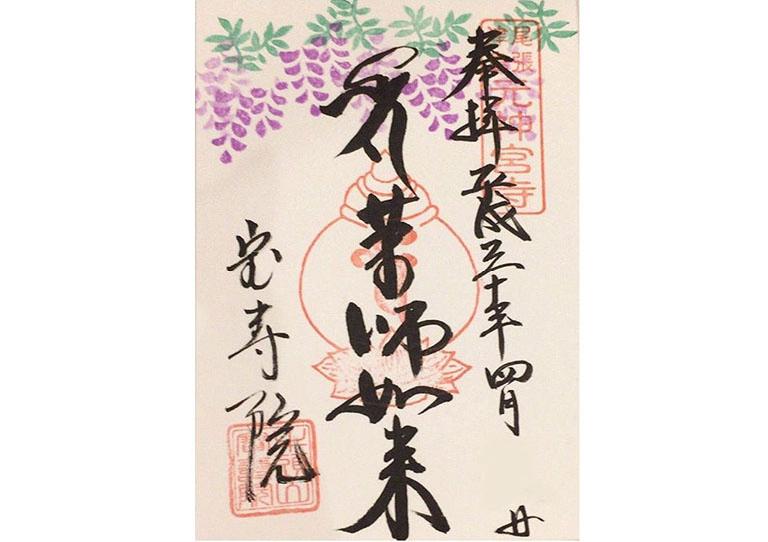 尾張元神宮寺
奉拝 平成三十年四月
薬師如来
宝寿院